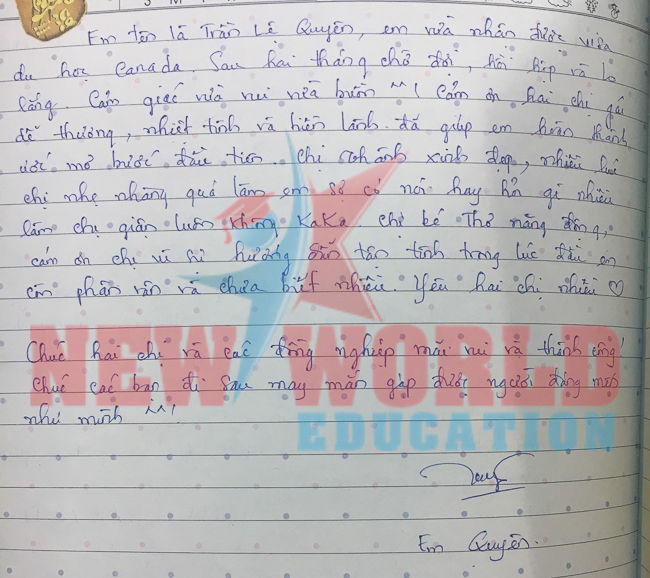 Em tên là Trần Lê Quyên, em vừa nhận được visa
du học Canada. Sau hai tháng chờ đợi, hồi hộp và lo
lắng. Cảm giác vừa vui vừa buồn ^^! Cảm ơn hai chị gái
dễ thương, nhiệt tình và hiền lành. đã giúp em hoàn thành
ước mơ bước đầu tiên. Chị Oanh xinh đẹp, nhiều lúc
chị nhẹ nhàng quá làm em sợ có nói hay hỏi gì nhiều
làm chị giận luôn không KaKa. chị bé Thơ năng động,
cảm ơn chị vì sự hướng dẫn tận tình trong lúc đầu em
còn phân vân và chưa biết nhiều. Yêu hai chị nhiều ♡
Chúc hai chị và các đồng nghiệp mãi vui và thành công!
Chúc các bạn đi sau may mắn gặp được người đáng mến
như mình ^^!
NEW WORLD
EDUCATION
Em Quyên.